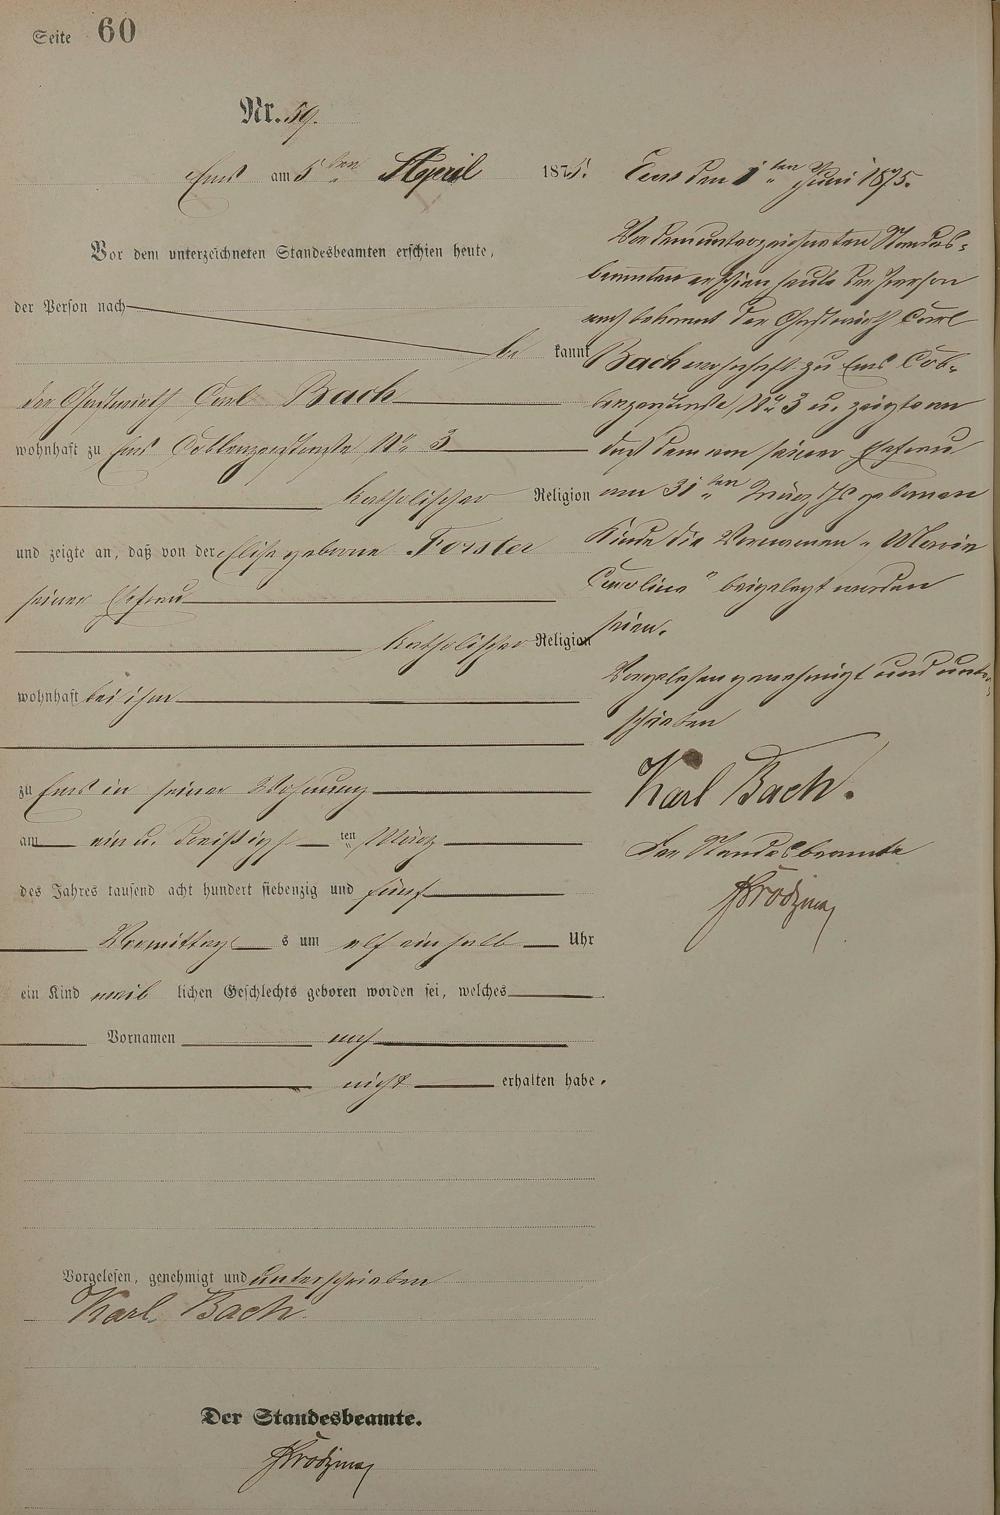 Seite 60
Nr. 59.
Ems am 5ten April 1875.
Vor dem unterzeichneten Standesbeamten erschien heute,
der Person nach
be kannt
der Gastwirth Carl Bach
wohnhaft zu Ems Coblenzerstraße No 3
katholischer Religion
und zeigte an, daß von der Elise geborne Forster
seiner Ehefrau
katholischer Religion
wohnhaft bei ihm
zu Ems in seiner Wohnung
am ein u. dreißigsten März
des Jahres tausend acht hundert siebenzig und fünf
Vormittags um elf ein halb Uhr
ein Kind weiblichen Geschlechts geboren worden sei, welches
Vornamen noch
nicht erhalten habe.
Vorgelesen, genehmigt und unterschrieben
Karl Bach.
Der Standesbeamte.
Ems den 1ten Juni 1875.
Vor dem unterzeichneten Standes-
beamten erschien heute der Person
nach bekannt der Gastwirth Carl
Bach wohnhaft zu Ems Cob-
lenzerstraße No 3 u. zeigte an
daß dem von seiner Ehefrau
am 31ten März 75 geborenen
Kinde die Vornamen „Maria
Carolina" beigelegt worden
seien.
Vorgelesen genehmigt und unter-
schrieben
Karl Bach.
Der Standesbeamte